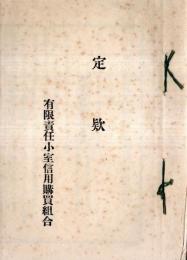 定款
有限責任小室信用購買組合